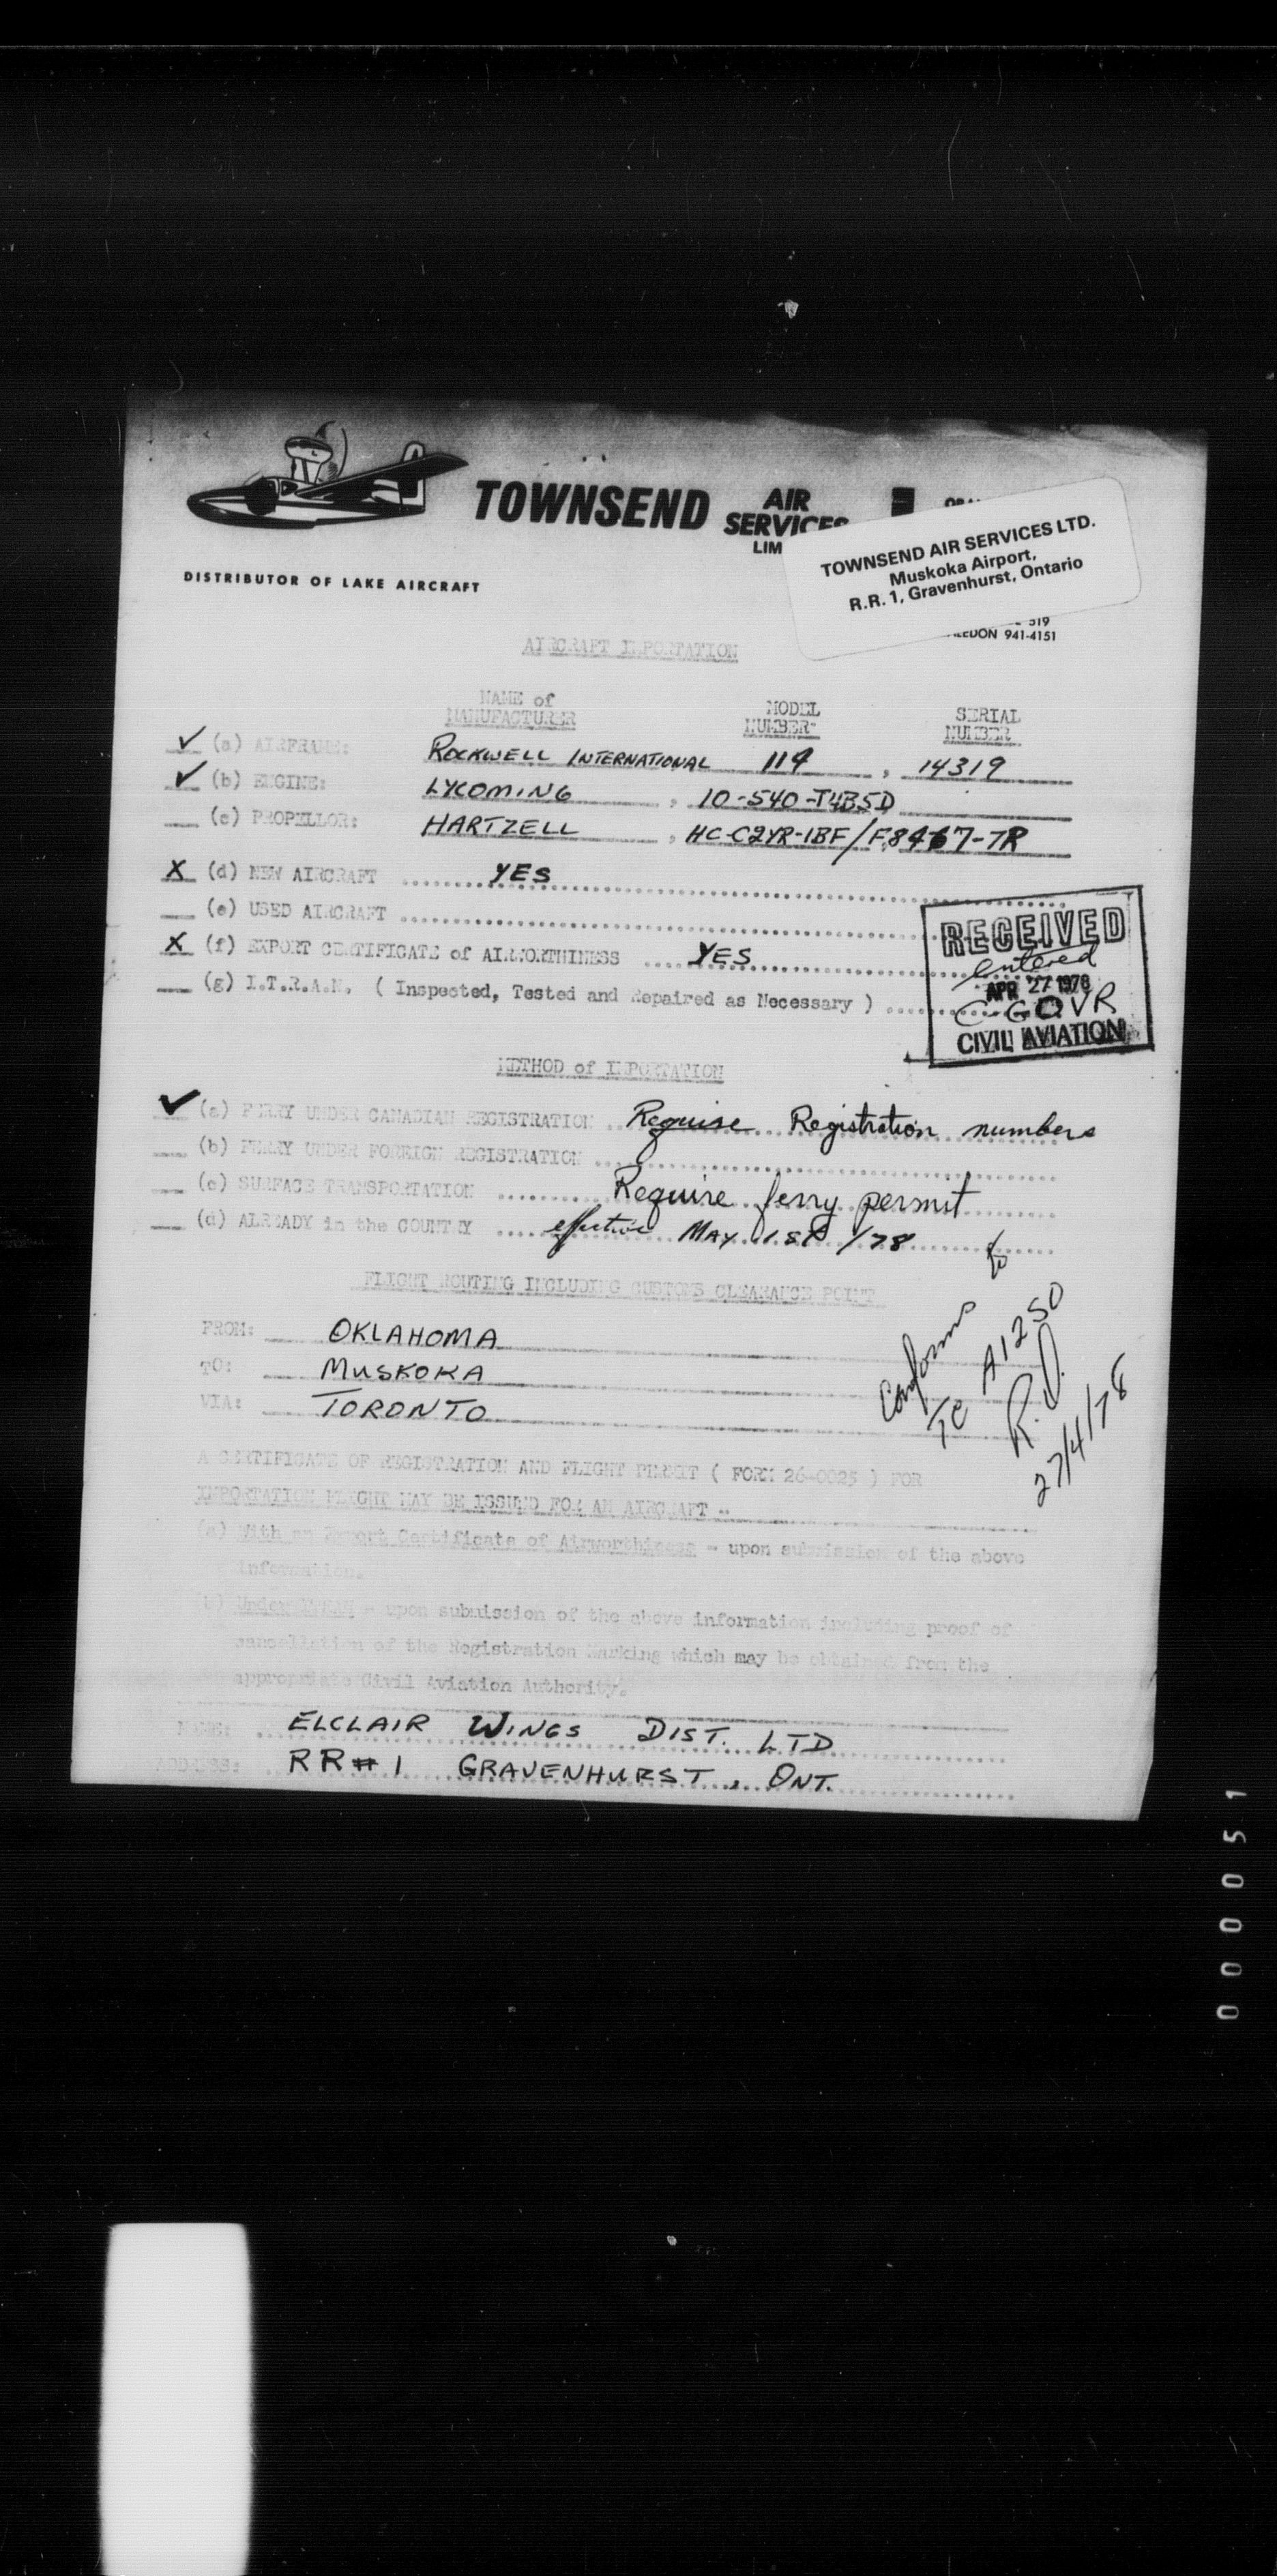 TOWNSEND AIR SERVICES LIM
TOWNSEND AIR SERVICES LTD.
Muskoka Airport,
R.R. 1, Gravenhurst, Ontario
DISTRIBUTOR OF LAKE AIRCRAFT
519
LEDON 941-4151
AIRCRAFT IMPORTATION
NAME of MANUFACTURER MODEL NUMBER SERIAL NUMBER
✓ (a) AIRFRAME: ROCKWELL INTERNATIONAL 114 , 14319
✓ (b) ENGINE: LYCOMING , IO-540-T4B5D
(c) PROPELLOR: HARTZELL , HC-C2YR-1BF/F8467-7R
X (d) NEW AIRCRAFT YES
(e) USED AIRCRAFT
X (f) EXPORT CERTIFICATE of AIRWORTHINESS YES
(g) I.T.R.A.N. ( Inspected, Tested and Repaired as Necessary )
RECEIVED
entered
APR 27 1978
C-GOVR
CIVIL AVIATION
METHOD of IMPORTATION
✓ (a) FERRY UNDER CANADIAN REGISTRATION Require Registration numbers
(b) FERRY UNDER FOREIGN REGISTRATION
(c) SURFACE TRANSPORTATION Require ferry permit
(d) ALREADY in the COUNTRY effective MAY 1st /78
FLIGHT ROUTING INCLUDING CUSTOMS CLEARANCE POINT
FROM: OKLAHOMA
TO: MUSKOKA
VIA: TORONTO
Conforms to
TC A12SO
R.D.
27/4/78
A CERTIFICATE OF REGISTRATION AND FLIGHT PERMIT ( FORM 26-0025 ) FOR
IMPORTATION FLIGHT MAY BE ISSUED FOR AN AIRCRAFT -
(a) With an Export Certificate of Airworthiness - upon submission of the above
information.
(b) Under ITRAN - upon submission of the above information including proof of
cancellation of the Registration Marking which may be obtained from the
appropriate Civil Aviation Authority.
NAME: ELCLAIR WINGS DIST. LTD
ADDRESS: RR#1 GRAVENHURST, ONT.
000051